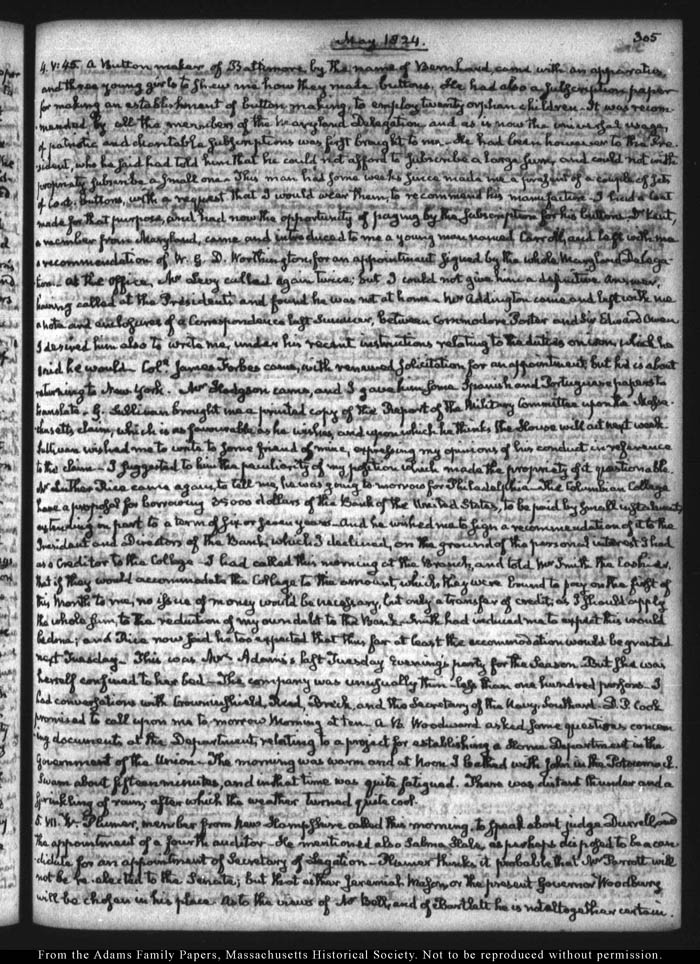 May 1824.
305
4. V:45. A Button maker of Baltimore by the name of Bernhard, came with an apparatus
and three young girls to shew me how they made buttons. He had also a subscription paper
for making an establishment of button making, to employ twenty orphan children. It was recom-
mended by all the members of the Maryland Delegation and as is now the universal usage,
of patriotic and charitable subscriptions was first brought to me. He had been however to the Pre-
sident, who he said had told him that he could not afford to subscribe a large sum, and could not with
propriety subscribe a small one. This man had some weeks since made me a present of a couple of sets
of Coat-buttons, with a request that I would wear them, to recommend his manufacture. I had a coat
made for that purpose, and had now the opportunity of paying by the subscription for his buttons. Dr Kent,
a member from Maryland, came and introduced to me a young man named Carroll, and left with me
a recommendation of W. G. D. Worthington, for an appointment signed by the whole Maryland Delega-
tion. At the Office, Mr Levy called again twice, but I could not give him a definitive answer,
having called at the President's and found he was not at home. Mr Addington came and left with me
a note and enclosures of a Correspondence last Summer, between Commodore Porter and Sir Edward Owen
I desired him also to write me, under his recent instructions relating to the duties on iron, which he
said he would. Coll. James Forbes came, with renewed solicitation for an appointment, but he is about
returning to New York. Mr Hodgson came, and I gave him some Spanish and Portuguese papers to
translate. G. Sullivan brought me a printed copy of the Report of the Military Committee upon the Massa-
chusetts claim, which is as favourable as he wishes, and upon which he thinks the House will act next week.
Sullivan wished me to write to some friend of mine, expressing my opinions of his conduct in reference
to the claim. I suggested to him the peculiarity of my position which made the propriety of it questionable.
Mr Luther Rice came again, to tell me, he was going to morrow for Philadelphia. The Columbian College
have a proposal for borrowing 35000 dollars of the Bank of the United States, to be paid by small instalments,
extending in part to a term of six or seven years. And he wished me to sign a recommendation of it to the
President and Directors of the Bank, which I declined, on the ground of the personal interest I had
as a Creditor to the College. I had called this morning at the Branch, and told Mr Smith the Cashier,
that if they would accommodate the College to the amount, which they were bound to pay on the first of
this Month to me, no issue of money would be necessary, but only a transfer of credit; as I should apply
the whole sum, to the reduction of my own debt to the Bank. Smith had induced me to expect this would
be done; and Rice now said he too expected that thus far at least the accommodation would be granted
next Tuesday. This was Mrs Adams's last Tuesday evening's party for the Season. But she was
herself confined to her bed. The company was unusually thin. Less than one hundred persons. I
had conversations with Crowninshield, Read, Breck, and the Secretary of the Navy, Southard. D. P. Cook
promised to call upon me to morrow Morning at ten. A. B. Woodward asked some questions concern-
ing documents at the Department, relating to a project for establishing a Home Department in the
Government of the Union. The morning was warm and at noon I bathed with John in the Potowmack.
Swam about fifteen minutes, and in that time was quite fatigued. There was distant thunder and a
sprinkling of rain, after which the weather turned quite cool.
5. VII. W. Plumer, member from New Hampshire called this morning, to speak about judge Durell and
the appointment of a fourth auditor. He mentioned also Salma Hale, as perhaps disposed to be a can-
didate for an appointment of Secretary of Legation. Plumer thinks it probable that Mr Parrott will
not be re-elected to the Senate; but that either Jeremiah Mason, or the present Governor Woodbury
will be chosen in his place. As to the views of Mr Bell, and of Bartlett he is not altogether certain.
From the Adams Family Papers, Massachusetts Historical Society. Not to be reproduced without permission.